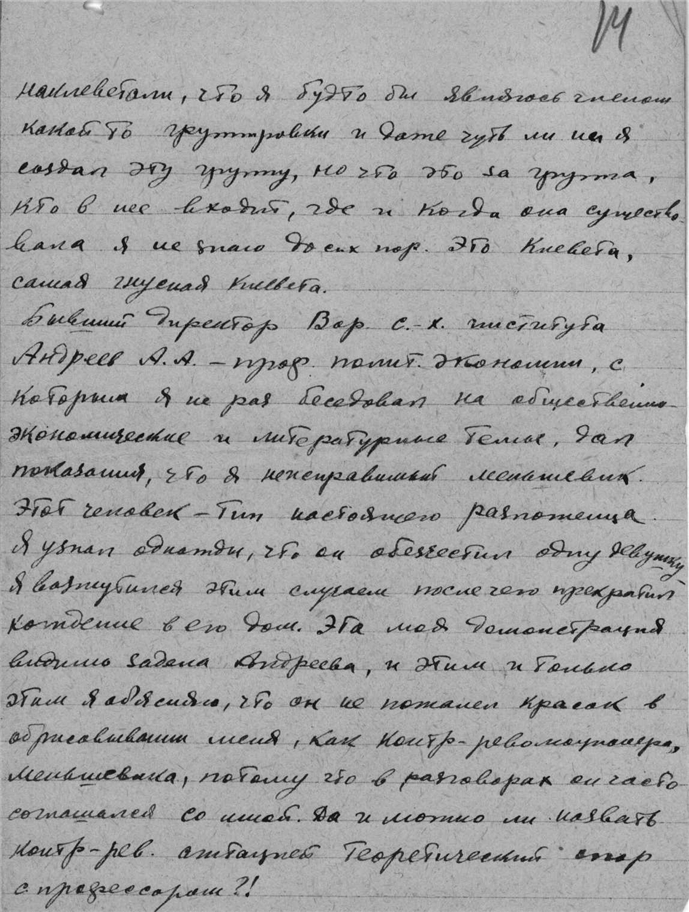 14
наклеветали, что я будто бы являюсь членом
какой то группировки и даже чуть ли не я
создал эту группу, но что это за группа,
кто в нее входит, где и когда она существо-
вала я не знаю до сих пор. Это клевета,
самая гнусная клевета.
Бывший директор Вор. с.-х. института
Андреев А.А. – проф. полит. экономии, с
которым я не раз беседовал на общественно-
экономические и литературные темы, дал
показания, что я неисправимый меньшевик.
Этот человек – тип настоящего разложенца.
Я узнал однажды, что он обезчестил одну девушку
я возмутился этим случаем после чего прекратил
хождение в его дом. Эта моя демонстрация
видимо задела Андреева, и этим и только
этим я об'ясняю, что он не пожалел красок в
обрисовывании меня, как контр-революционера,
меньшевика, потому что в разговорах он часто
соглашался со мной. Да и можно ли назвать
контр-рев. агитацией теоретический спор
с профессором?!